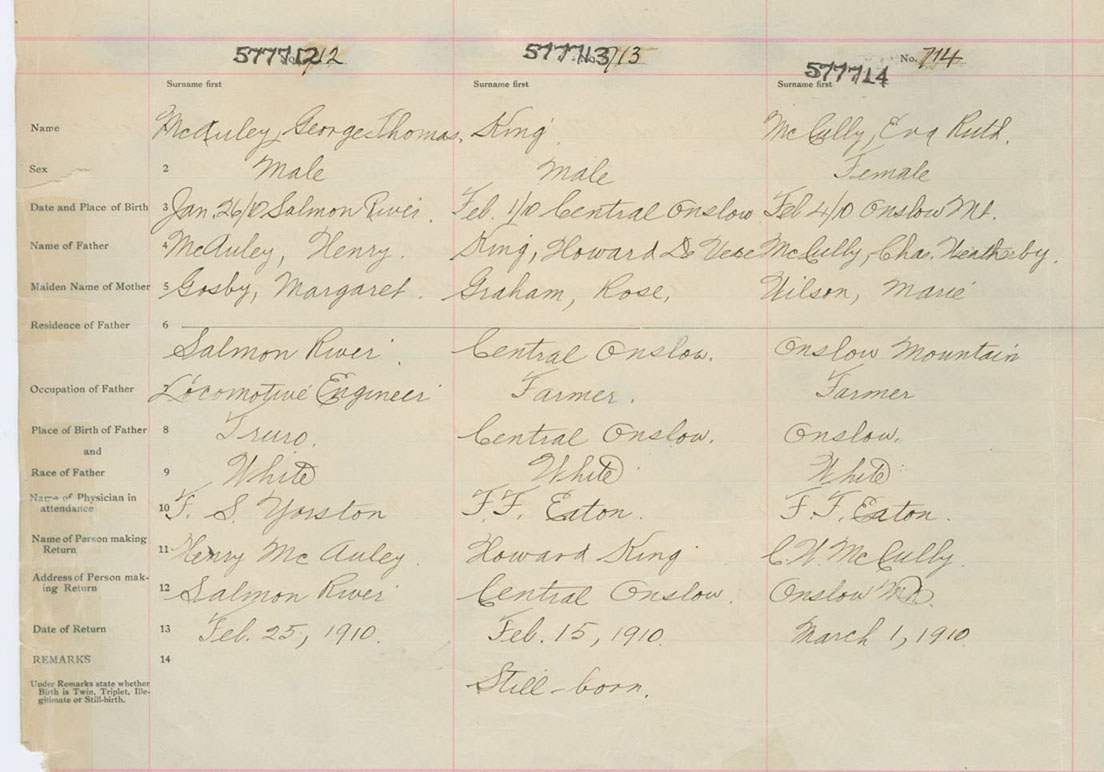 577712 712 577713 713 No. 714
577714
Surname first Surname first Surname first
Name McAuley, George Thomas. King McCully, Eva Ruth.
Sex 2 Male Male Female
Date and Place of Birth 3 Jan. 26/10 Salmon River. Feb. 1/10 Central Onslow Feb 4/10 Onslow Mt.
Name of Father 4 McAuley, Henry. King, Howard McCully, Chas. Weatherby.
Maiden Name of Mother 5 Gosby, Margaret. Graham, Rose, Wilson, Marie
Residence of Father 6
Salmon River. Central Onslow. Onslow Mountain
Occupation of Father 7 Locomotive Engineer Farmer. Farmer
Place of Birth of Father 8 Truro. Central Onslow. Onslow.
and
Race of Father 9 White White White
Name of Physician in
attendance 10 F. S. Yorston F. F. Eaton. F. F. Eaton.
Name of Person making
Return 11 Henry McAuley. Howard King C. W. McCully.
Address of Person mak-
ing Return 12 Salmon River Central Onslow. Onslow Mt.
Date of Return 13 Feb. 25, 1910. Feb. 15, 1910. March 1, 1910.
REMARKS 14
Under Remarks state whether
Birth is Twin, Triplet, Ille-
gitimate or Still-birth.
Still-born.